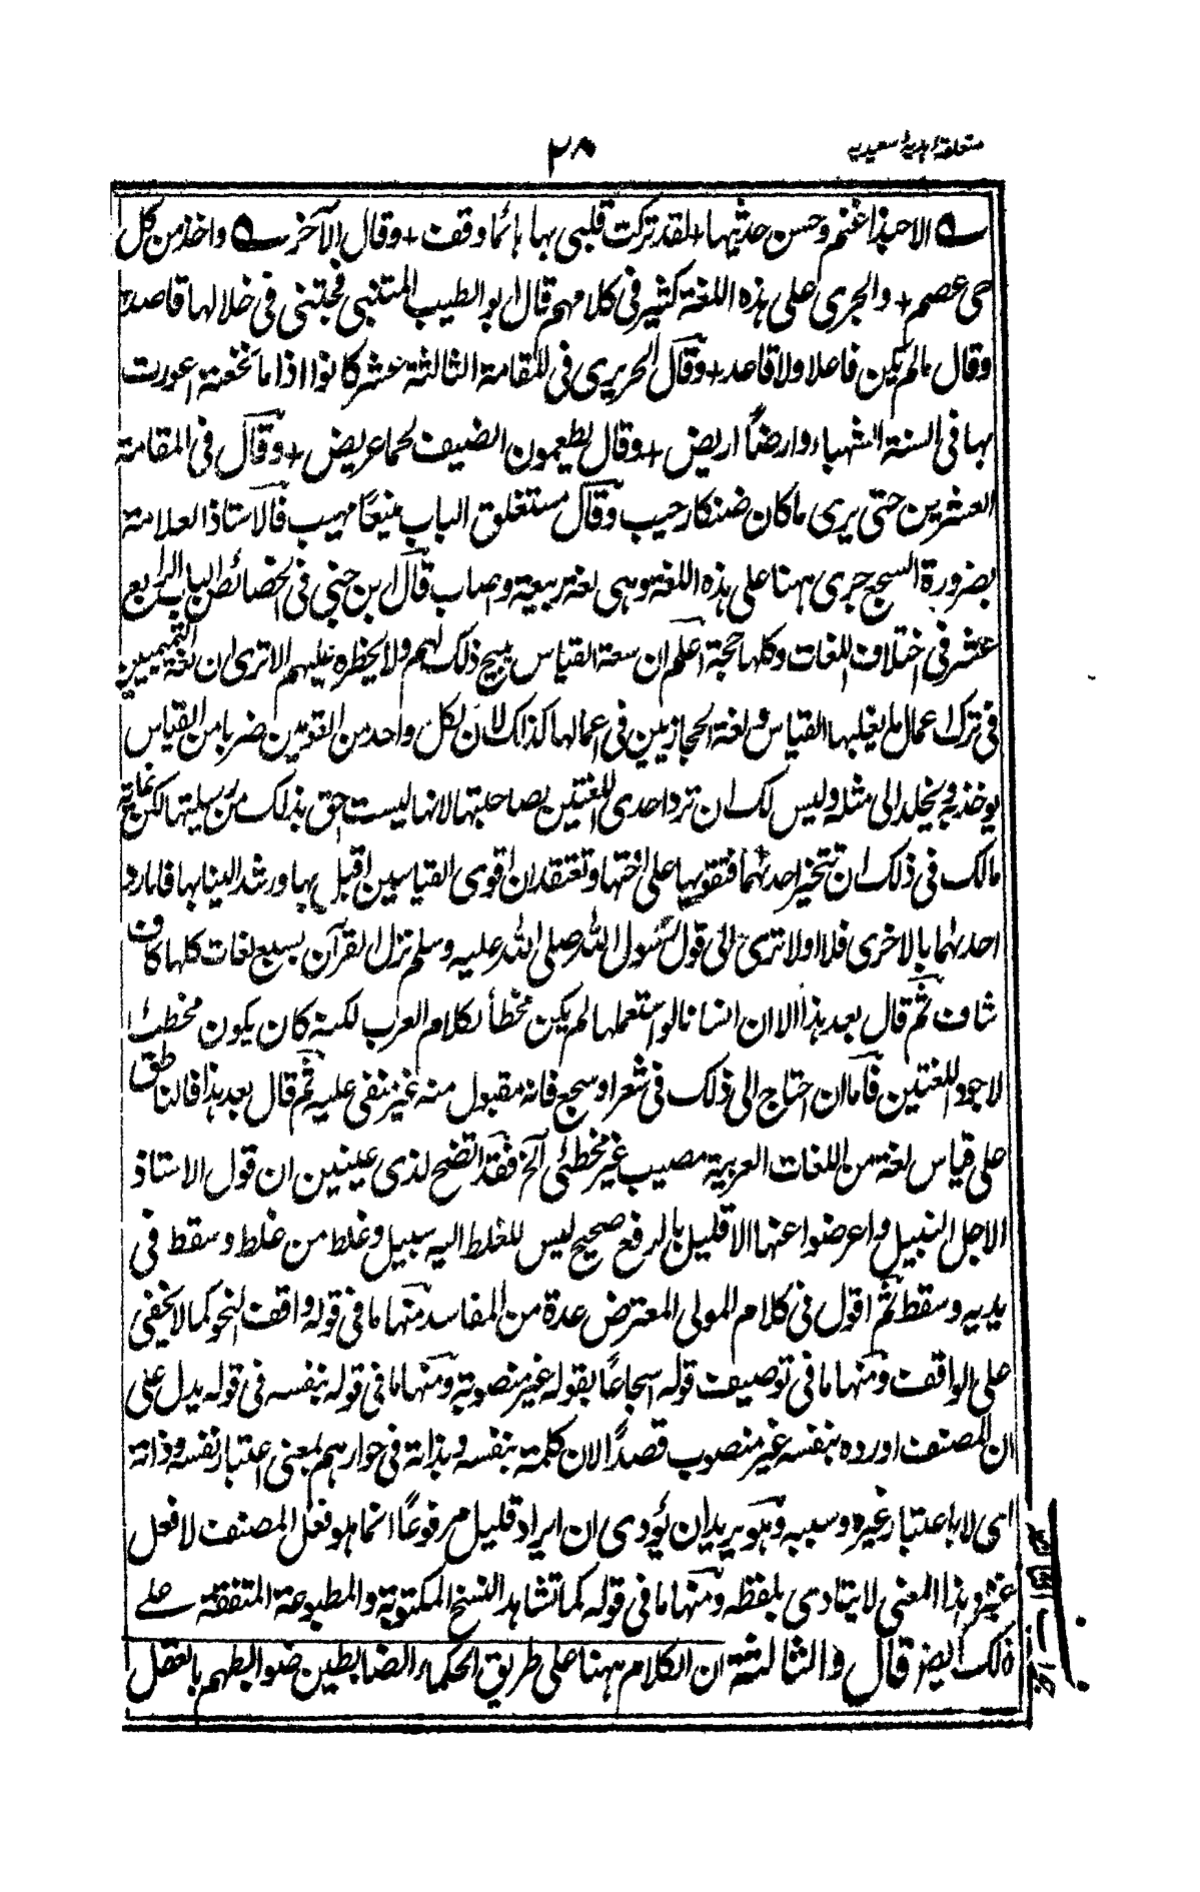 متعلقة ہدیۂ سعیدیہ
۲۸
الا حبذا غنم وحسن حديثها + لقد تركت قلبى بها هائما وقف + وقال الآخر واخذ من كل
حى عصم + والجرى على هذه اللغة كثير فى كلامهم قال ابو الطيب المتنبى فجئتنى فى خلالها قاصد
وقال مالم يكن فاعلا ولا قاصد + وقال الحريرى فى المقامة الثالثة عشر كانوا اذا ما نجعة اعورت
بها فى السنة الشهباء وارضاً اريض + وقال يطعمون الضيف لحما عريض + وقال فى المقامة
العشرين حتى يرى ما كان ضنكا رحيب وقال مستغلق الباب منيعاً مهيب فالاستاذ العلامة
بضرورة السجع جرى ههنا على هذه اللغة وهى لغة ربيعة واصاب قال ابن جنى فى الخصائص الباب الرابع
عشر فى اختلاف اللغات وكلها حجة اعلم ان سعة القياس تبيح ذلك لهم ولا يحظره عليهم الا ترى ان لغة التميميين
فى ترك اعمال ما يقبلها القياس ولغة الحجازيين فى اعمالها كذلك لان لكل واحد من القومين ضربا من القياس
يوخذ به ويخلد الى مثله وليس لك ان ترد احدى اللغتين بصاحبتها لانها ليست احق بذلك من رسيلتها لكن غاية
مالك فى ذلك ان تتخير احدٰهما فتقويها على اختها وتعتقد ان اقوى القياسين اقبل بها ورشد الينا بها فاما رد
احدٰهما بالاخرى فلا اولا ترى الى قول رسول الله صلى الله عليه وسلم نزل القرآن بسبع لغات كلها كاف
شاف ثم قال بعد هذا الا ان انسانا لو استعملها لم يكن مخطأ لكلام العرب لكنه كان يكون مخطئا
لاجود اللغتين فاما ان احتاج الى ذلك فى شعر او سجع فانه مقبول منه غير منفى عليه ثم قال بعد هذا فالناطق
على قياس لغة من اللغات العربية مصيب غير مخطئى آلخ فقد اتضح لذى عينين ان قول الاستاذ
الاجل النبيل واعرضوا عنها الا قليل بالرفع صحيح ليس للغلط اليه سبيل وغلط من غلط وسقط فى
يديه وسقط ثم اقول فى كلام المولى المعترض عدة من المفاسد منها ما فى قوله واقف النحو كما لا يخفى
على الواقف ومنها ما فى توصيف قوله اسجاعاً بقوله غير منصوبة ومنها ما فى قوله بنفسه فى قوله يدل على
ان المصنف اورده بنفسه غير منصوب قصداً الان كلمة بنفسه وبذاته فى حوارهم بمعنى اعتبار نفسه وذاته
اى لا باعتبار غيره وسببه وهو يريد ان يؤدى ان ايراد قليل مرفوعاً انما هو فعل المصنف لا فعل
غيره وهذا المعنى لا يتادى بلفظه ومنها ما فى قوله كما تشاهد النسخ المكتوبة والمطبوعة المتفقة علے
ذلك ايضز قال والثالثة ان الكلام ههنا على طريق الحكماء الضابطين ضوابطهم بالعقل